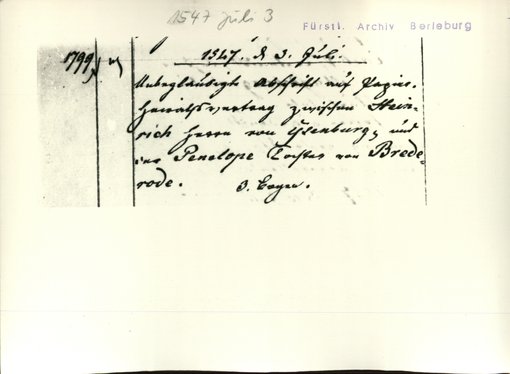 1547 Juli 3
Fürstl. Archiv Berleburg
1799
1547. d 3. Juli.
Unbeglaubigte Abschrift auf Papier.
Heirathsvertrag zwischen Hein-
rich Herrn von Ysenburg, und
der Penelope Tochter von Brede-
rode.
3. Bogen.